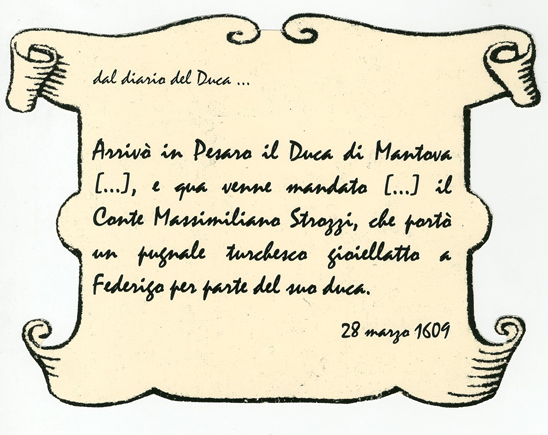 dal diario del Duca ...
Arrivò in Pesaro il Duca di Mantova
[...], e qua venne mandato [...] il
Conte Massimiliano Strozzi, che portò
un pugnale turchesco gioiellatto a
Federigo per parte del suo duca.
28 marzo 1609